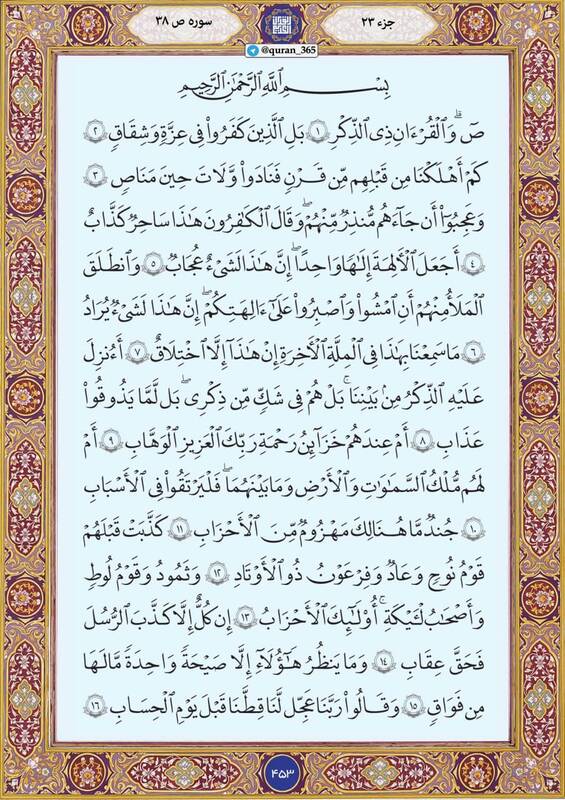 جزء ۲۳
سوره ص ۳۸
@quran_365
بِسْمِ اللَّهِ الرَّحْمَٰنِ الرَّحِيمِ
صٓ ۚ وَالْقُرْءَانِ ذِى الذِّكْرِ ١ بَلِ الَّذِينَ كَفَرُوا۟ فِى عِزَّةٍ وَشِقَاقٍ ٢
كَمْ أَهْلَكْنَا مِن قَبْلِهِم مِّن قَرْنٍ فَنَادَوا۟ وَّلَاتَ حِينَ مَنَاصٍ ٣
وَعَجِبُوٓا۟ أَن جَآءَهُم مُّنذِرٌ مِّنْهُمْ ۖ وَقَالَ الْكَٰفِرُونَ هَٰذَا سَاحِرٌ كَذَّابٌ
٤ أَجَعَلَ الْءَالِهَةَ إِلَٰهًا وَاحِدًا ۖ إِنَّ هَٰذَا لَشَىْءٌ عُجَابٌ ٥ وَانطَلَقَ
الْمَلَأُ مِنْهُمْ أَنِ امْشُوا۟ وَاصْبِرُوا۟ عَلَىٰٓ ءَالِهَتِكُمْ ۖ إِنَّ هَٰذَا لَشَىْءٌ يُرَادُ
٦ مَا سَمِعْنَا بِهَٰذَا فِى الْمِلَّةِ الْءَاخِرَةِ إِنْ هَٰذَآ إِلَّا اخْتِلَٰقٌ ٧ أَءُنزِلَ
عَلَيْهِ الذِّكْرُ مِنۢ بَيْنِنَا ۚ بَلْ هُمْ فِى شَكٍّ مِّن ذِكْرِى ۖ بَل لَّمَّا يَذُوقُوا۟
عَذَابِ ٨ أَمْ عِندَهُمْ خَزَآئِنُ رَحْمَةِ رَبِّكَ الْعَزِيزِ الْوَهَّابِ ٩ أَمْ
لَهُم مُّلْكُ السَّمَٰوَٰتِ وَالْأَرْضِ وَمَا بَيْنَهُمَا ۖ فَلْيَرْتَقُوا۟ فِى الْأَسْبَٰبِ
١٠ جُندٌ مَّا هُنَالِكَ مَهْزُومٌ مِّنَ الْأَحْزَابِ ١١ كَذَّبَتْ قَبْلَهُمْ
قَوْمُ نُوحٍ وَعَادٌ وَفِرْعَوْنُ ذُو الْأَوْتَادِ ١٢ وَثَمُودُ وَقَوْمُ لُوطٍ
وَأَصْحَٰبُ لْـَٔيْكَةِ ۚ أُو۟لَٰٓئِكَ الْأَحْزَابُ ١٣ إِن كُلٌّ إِلَّا كَذَّبَ الرُّسُلَ
فَحَقَّ عِقَابِ ١٤ وَمَا يَنظُرُ هَٰٓؤُلَآءِ إِلَّا صَيْحَةً وَٰحِدَةً مَّا لَهَا
مِن فَوَاقٍ ١٥ وَقَالُوا۟ رَبَّنَا عَجِّل لَّنَا قِطَّنَا قَبْلَ يَوْمِ الْحِسَابِ ١٦
۴۵۳